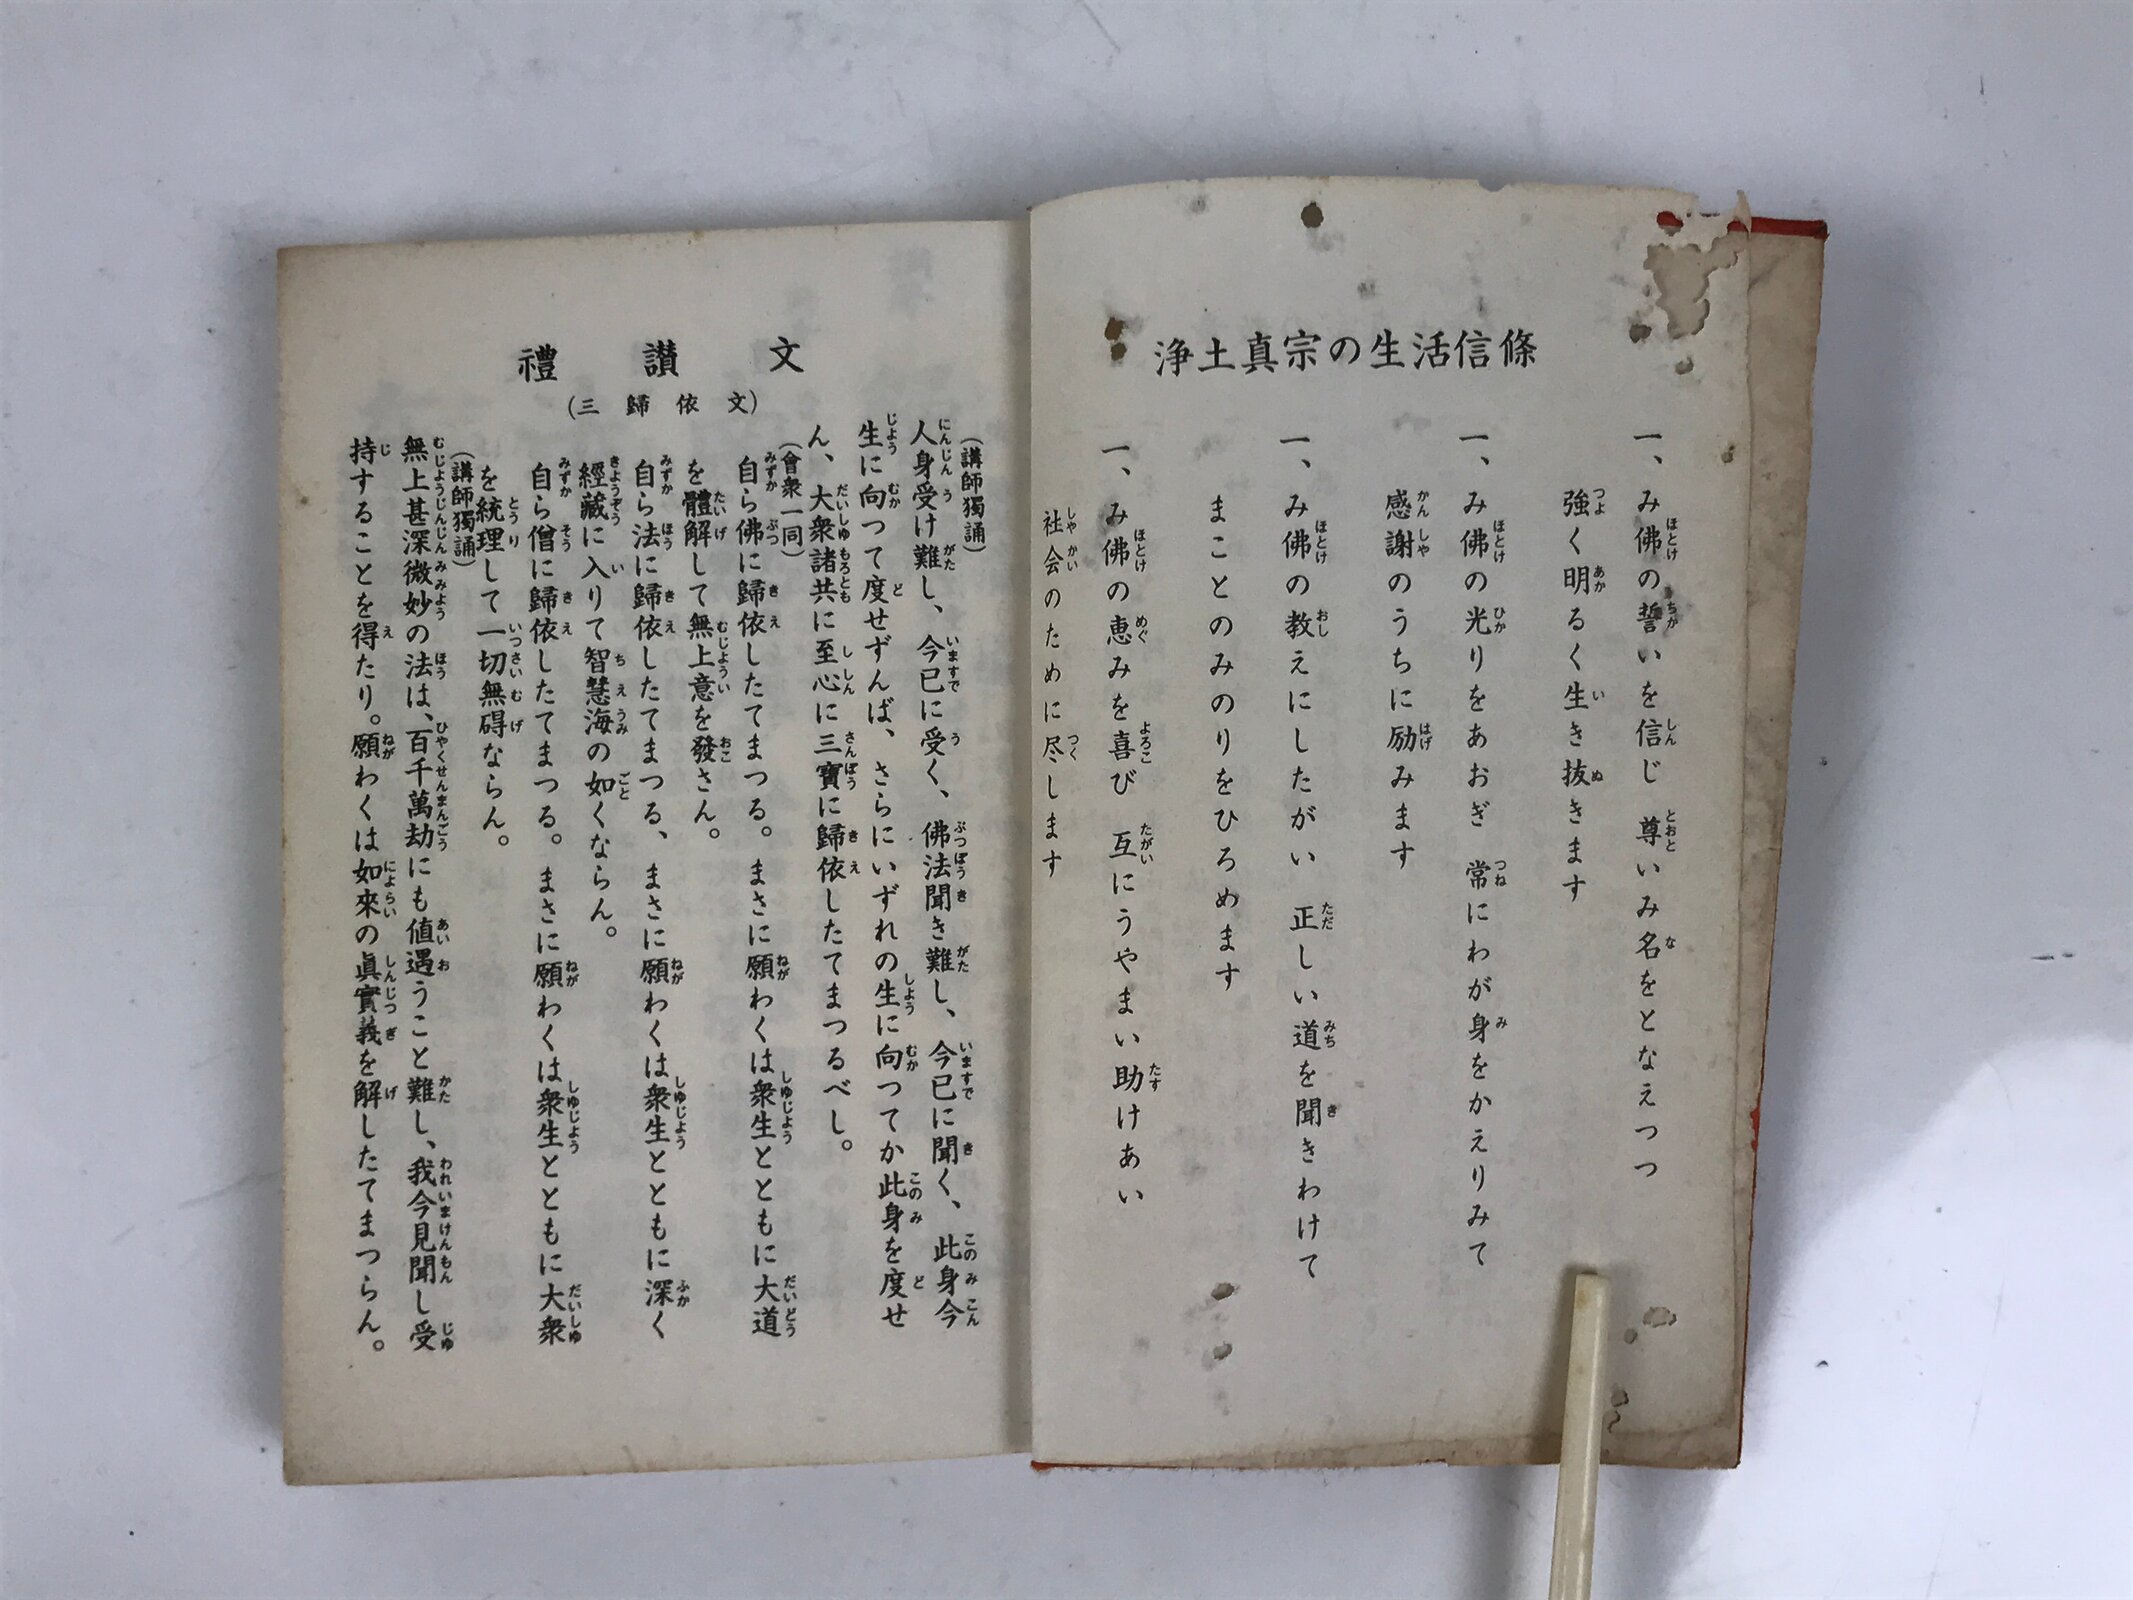 浄土真宗の生活信條
一、み佛の誓いを信じ　尊いみ名をとなえつつ
強く明るく生き抜きます
一、み佛の光りをあおぎ　常にわが身をかえりみて
感謝のうちに励みます
一、み佛の教えにしたがい　正しい道を聞きわけて
まことのみのりをひろめます
一、み佛の恵みを喜び　互にうやまい助けあい
社会のために尽します
禮讃文
(三歸依文)
(講師獨誦)
人身受け難し、今已に受く、佛法聞き難し、今已に聞く、此身今
生に向つて度せずんば、さらにいずれの生に向つてか此身を度せ
ん、大衆諸共に至心に三寶に歸依したてまつるべし。
(會衆一同)
自ら佛に歸依したてまつる。まさに願わくは衆生とともに大道
を體解して無上意を發さん。
自ら法に歸依したてまつる、まさに願わくは衆生とともに深く
經藏に入りて智慧海の如くならん。
自ら僧に歸依したてまつる。まさに願わくは衆生とともに大衆
を統理して一切無碍ならん。
(講師獨誦)
無上甚深微妙の法は、百千萬劫にも値遇うこと難し、我今見聞し受
持することを得たり。願わくは如來の眞實義を解したてまつらん。